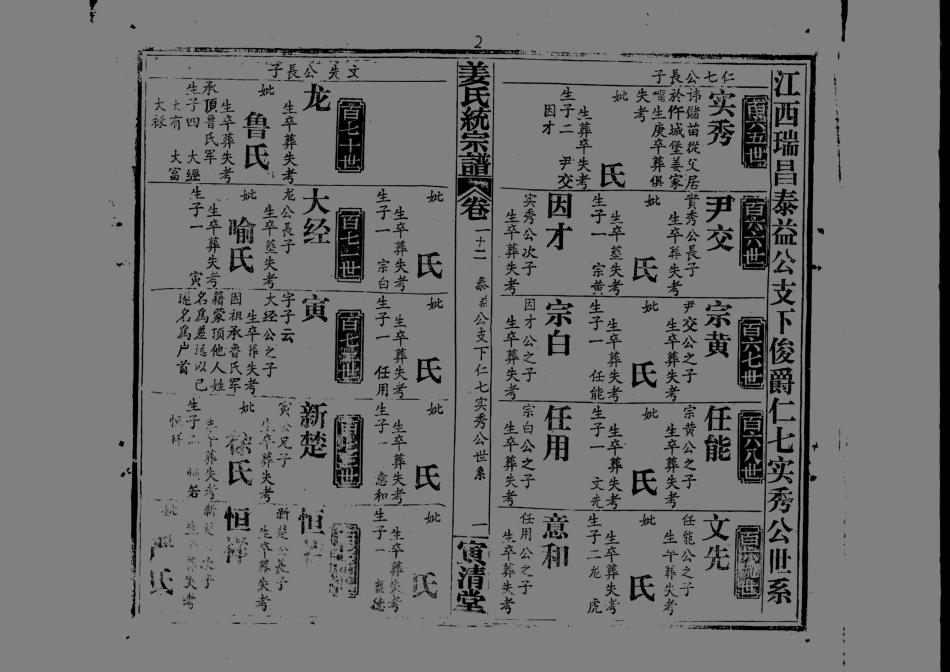 2
江西瑞昌泰益公支下俊爵仁七实秀公世系
百六五世
仁七公長子
实秀
諱儲苗從父居
長於仵城堡姜家
嘴生庚卒葬俱
失考
妣 氏
生卒葬失考
生子二 尹交
因才
百六六世
尹交
實秀公長子
生卒葬失考
妣 氏
生卒葬失考
生子一 宗黄
因才
实秀公次子
生卒葬失考
妣 氏
生卒葬失考
生子一 宗白
百六七世
宗黄
尹交公之子
生卒葬失考
妣 氏
生卒葬失考
生子一 任能
宗白
因才公之子
生卒葬失考
妣 氏
生卒葬失考
生子一 任用
百六八世
任能
宗黄公之子
生卒葬失考
妣 氏
生卒葬失考
生子一 文先
任用
宗白公之子
生卒葬失考
妣 氏
生卒葬失考
生子一 意和
百六九世
文先
任能公之子
生卒葬失考
妣 氏
生卒葬失考
生子二 龙 虎
意和
任用公之子
生卒葬失考
妣 氏
生卒葬失考
生子一
姜氏統宗譜 卷
一十二 泰益公支下仁七实秀公世系
一
寅清堂
百七十世
文先公長子
龙
生卒葬失考
妣 鲁氏
生卒葬失考
承頂鲁氏軍
生子四 大經
大有 大富
大禄
百七一世
大经
龙公長子
生卒葬失考
妣 喻氏
生卒葬失考
生子一 寅
寅
字子云
大经公之子
生卒葬失考
因祖承鲁氏軍
籍蒙頂他人姓
名爲差远以已
名爲户首
新楚
寅公兄子
生卒葬失考
妣 徐氏
生卒葬失考
生子二 恒若
恒祥
恒
新楚公長子
生卒葬失考
恒祥
妣 氏
生卒葬失考